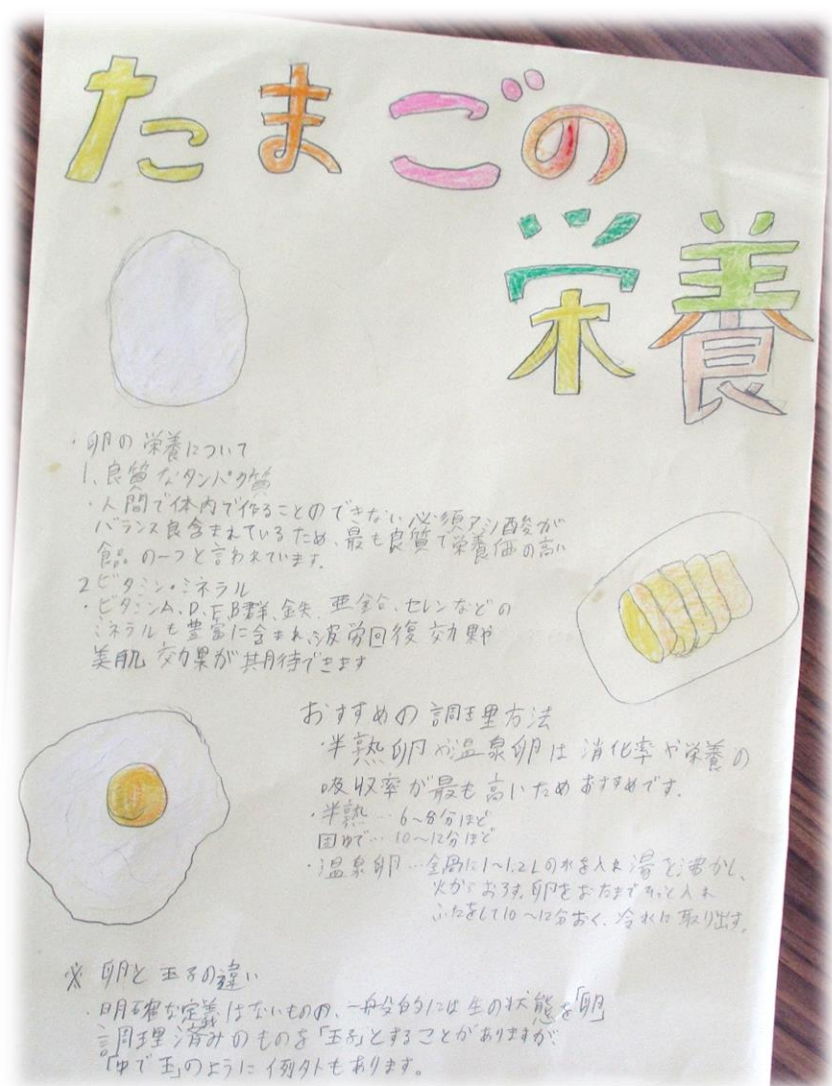 たまごの
栄養
・卵の栄養について
1、良質なタンパク質
・人間で体内で作ることのできない必須アミノ酸が
バランス良含まれているため、最も良質で栄養価の高い
食品の一つと言われています。
2ビタミン・ミネラル
・ビタミンA、D、E、B群、鉄、亜鉛、セレンなどの
ミネラルも豊富に含まれ、疲労回復効果や
美肌効果が期待できます
おすすめの調理方法
・半熟卵や温泉卵は消化率や栄養の
吸収率が最も高いためおすすめです。
・半熟…6~8分ほど
固ゆで…10~12分ほど
・温泉卵…全鍋に1~1.2Lの水を入れ湯を沸かし、
火からおろす。卵をおたまでそっと入れ
ふたをして10~12分おく、冷水に取り出す。
※卵と玉子の違い
・明確な定義はないものの、一般的には生の状態を「卵」
調理済みのものを「玉子」とすることがありますが
「ゆで玉」のように例外もあります。